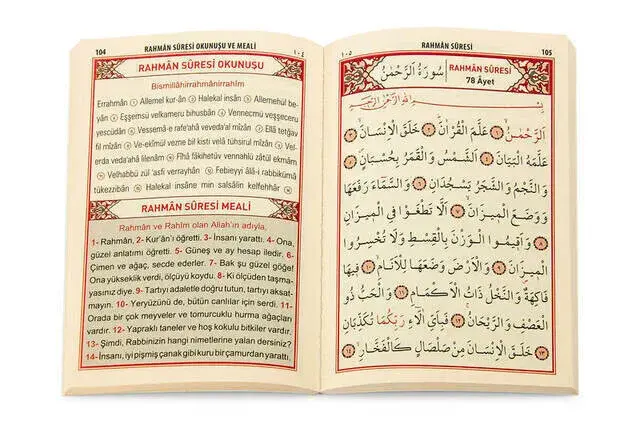 104
RAHMÂN SÛRESİ OKUNUŞU VE MEALİ
١٠٤
RAHMÂN SÛRESİ OKUNUŞU
Bismillâhirrahmânirrahîm
Errahmân ① Allemel kur-ân ② Halekal insân ③ Allemehül be-
yân ④ Eşşemsü velkameru bihusbân ⑤ Vennecmü veşşeceru
yescüdân ⑥ Vessemâ-e rafe'ahâ veveda'al mîzân ⑦ Ellâ tetğav
fil mîzân ⑧ Ve-ekîmul vezne bil kıstı velâ tühsirul mîzân ⑨ Vel-
erda veda'ahâ lilenâm ⑩ Fîhâ fâkihetüv vennahlü zâtül ekmâm
⑪ Velhabbü zül 'asfi verrayhân ⑫ Febieyyi âlâ-i rabbikümâ
tükezzibân ⑬ Halekal insâne min salsâlin kelfehhâr ⑭
RAHMÂN SÛRESİ MEALİ
Rahman ve Rahîm olan Allah'ın adıyla,
1- Rahmân, 2- Kur'ân'ı öğretti. 3- İnsanı yarattı. 4- Ona,
güzel anlatımı öğretti. 5- Güneş ve ay hesap iledir. 6-
Çimen ve ağaç, secde ederler. 7- Bak şu güzel göğe!
Ona yükseklik verdi, ölçüyü koydu. 8- Ki ölçüden taşma-
yasınız diye. 9- Tartıyı adaletle doğru tutun, tartıyı aksat-
mayın. 10- Yeryüzünü de, bütün canlılar için serdi. 11-
Orada bir çok meyveler ve tomurcuklu hurma ağaçları
vardır. 12- Yapraklı taneler ve hoş kokulu bitkiler vardır.
13- Şimdi, Rabbinizin hangi nimetlerine yalan dersiniz?
14- İnsanı, iyi pişmiş çanak gibi kuru bir çamurdan yarattı.
١٠٥
RAHMÂN SÛRESİ
105
سُورَةُ اَلرَّحْمٰنُ
RAHMÂN SÛRESİ
78 Âyet
بِسْمِ اللهِ الرَّحْمٰنِ الرَّحِيمِ
اَلرَّحْمٰنُ ﴿١﴾ عَلَّمَ الْقُرْاٰنَ ﴿٢﴾ خَلَقَ الْاِنْسَانَ ﴿٣﴾
عَلَّمَهُ الْبَيَانَ ﴿٤﴾ اَلشَّمْسُ وَالْقَمَرُ بِحُسْبَانٍ ﴿٥﴾
وَالنَّجْمُ وَالشَّجَرُ يَسْجُدَانِ ﴿٦﴾ وَالسَّمَاءَ رَفَعَهَا
وَوَضَعَ الْمِيزَانَ ﴿٧﴾ اَلَّا تَطْغَوْا فِي الْمِيزَانِ
﴿٨﴾ وَاَقِيمُوا الْوَزْنَ بِالْقِسْطِ وَلَا تُخْسِرُوا
الْمِيزَانَ ﴿٩﴾ وَالْاَرْضَ وَضَعَهَا لِلْاَنَامِ ﴿١٠﴾ فِيهَا
فَاكِهَةٌ وَالنَّخْلُ ذَاتُ الْاَكْمَامِ ﴿١١﴾ وَالْحَبُّ ذُو
الْعَصْفِ وَالرَّيْحَانُ ﴿١٢﴾ فَبِاَيِّ اٰلَاءِ رَبِّكُمَا تُكَذِّبَانِ
﴿١٣﴾ خَلَقَ الْاِنْسَانَ مِنْ صَلْصَالٍ كَالْفَخَّارِ ﴿١٤﴾